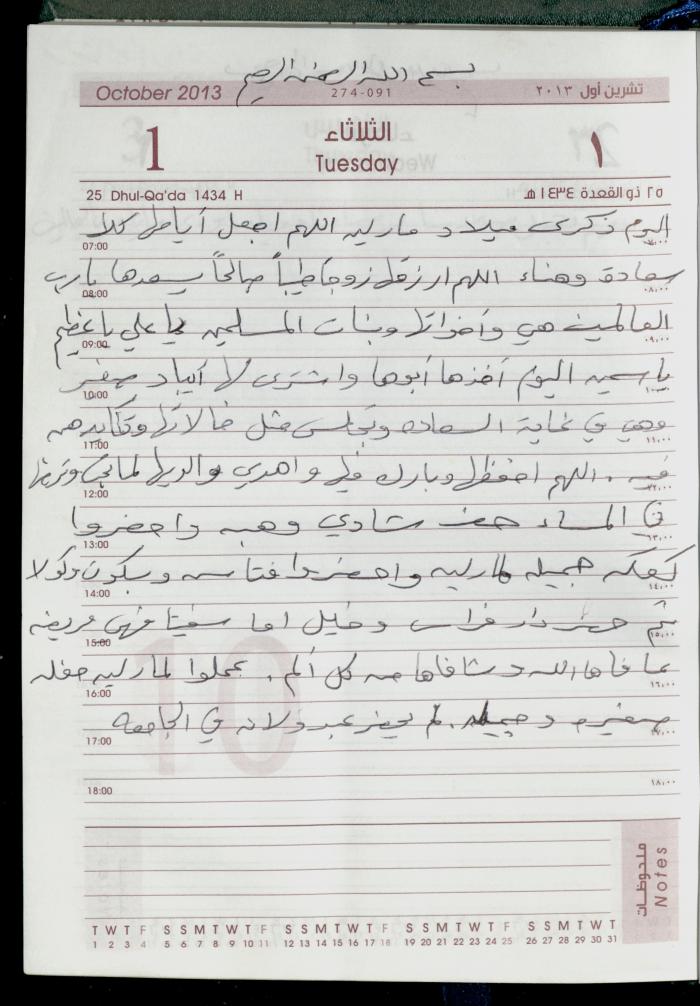 بسم الله الرحمن الرحيم
October 2013 274-091 تشرين أول ٢٠١٣
1 الثلاثاء ١
Tuesday
25 Dhul-Qa'da 1434 H ٢٥ ذو القعدة ١٤٣٤ هـ
اليوم ذكرى ميلاد مارلين اللهم اجعل أيامها كلها
07:00 ٧,٠٠
سعادة وهناء اللهم ارزقها زوجاً طيباً صالحاً يسعدها يارب
08:00 ٠٨,٠٠
العالمين هي وأخواتها وبنات المسلمين يا علي يا عظيم
09:00 ٠٩,٠٠
ياسمين اليوم أخذها أبوها واشترى لها آيباد صغير
10:00
وهي في غاية السعادة وتجلس مثل خالاتها
11:00 ١١,٠٠
فيه. اللهم احفظها وبارك فيها واهدي والديها لما
12:00 ١٢,٠٠
في المساء حضر شادي وهبه واحضروا
13:00 ١٣,٠٠
كعكه جميله لمارلين واحضروا وكولا
14:00 ١٤,٠٠
ثم حضر فراس وخليل اما فهي مريضه
15:00 ١٥,٠٠
عافاها الله وشافاها من كل ألم. عملوا لمارلين حفله
16:00 ١٦,٠٠
صغيره وجميله. لم يحضر عبد لانه في الجامعه
17:00
18:00 ١٨,٠٠
ملحوظات
Notes
T W T F S S M T W T F S S M T W T F S S M T W T F S S M T W T
1 2 3 4 5 6 7 8 9 10 11 12 13 14 15 16 17 18 19 20 21 22 23 24 25 26 27 28 29 30 31